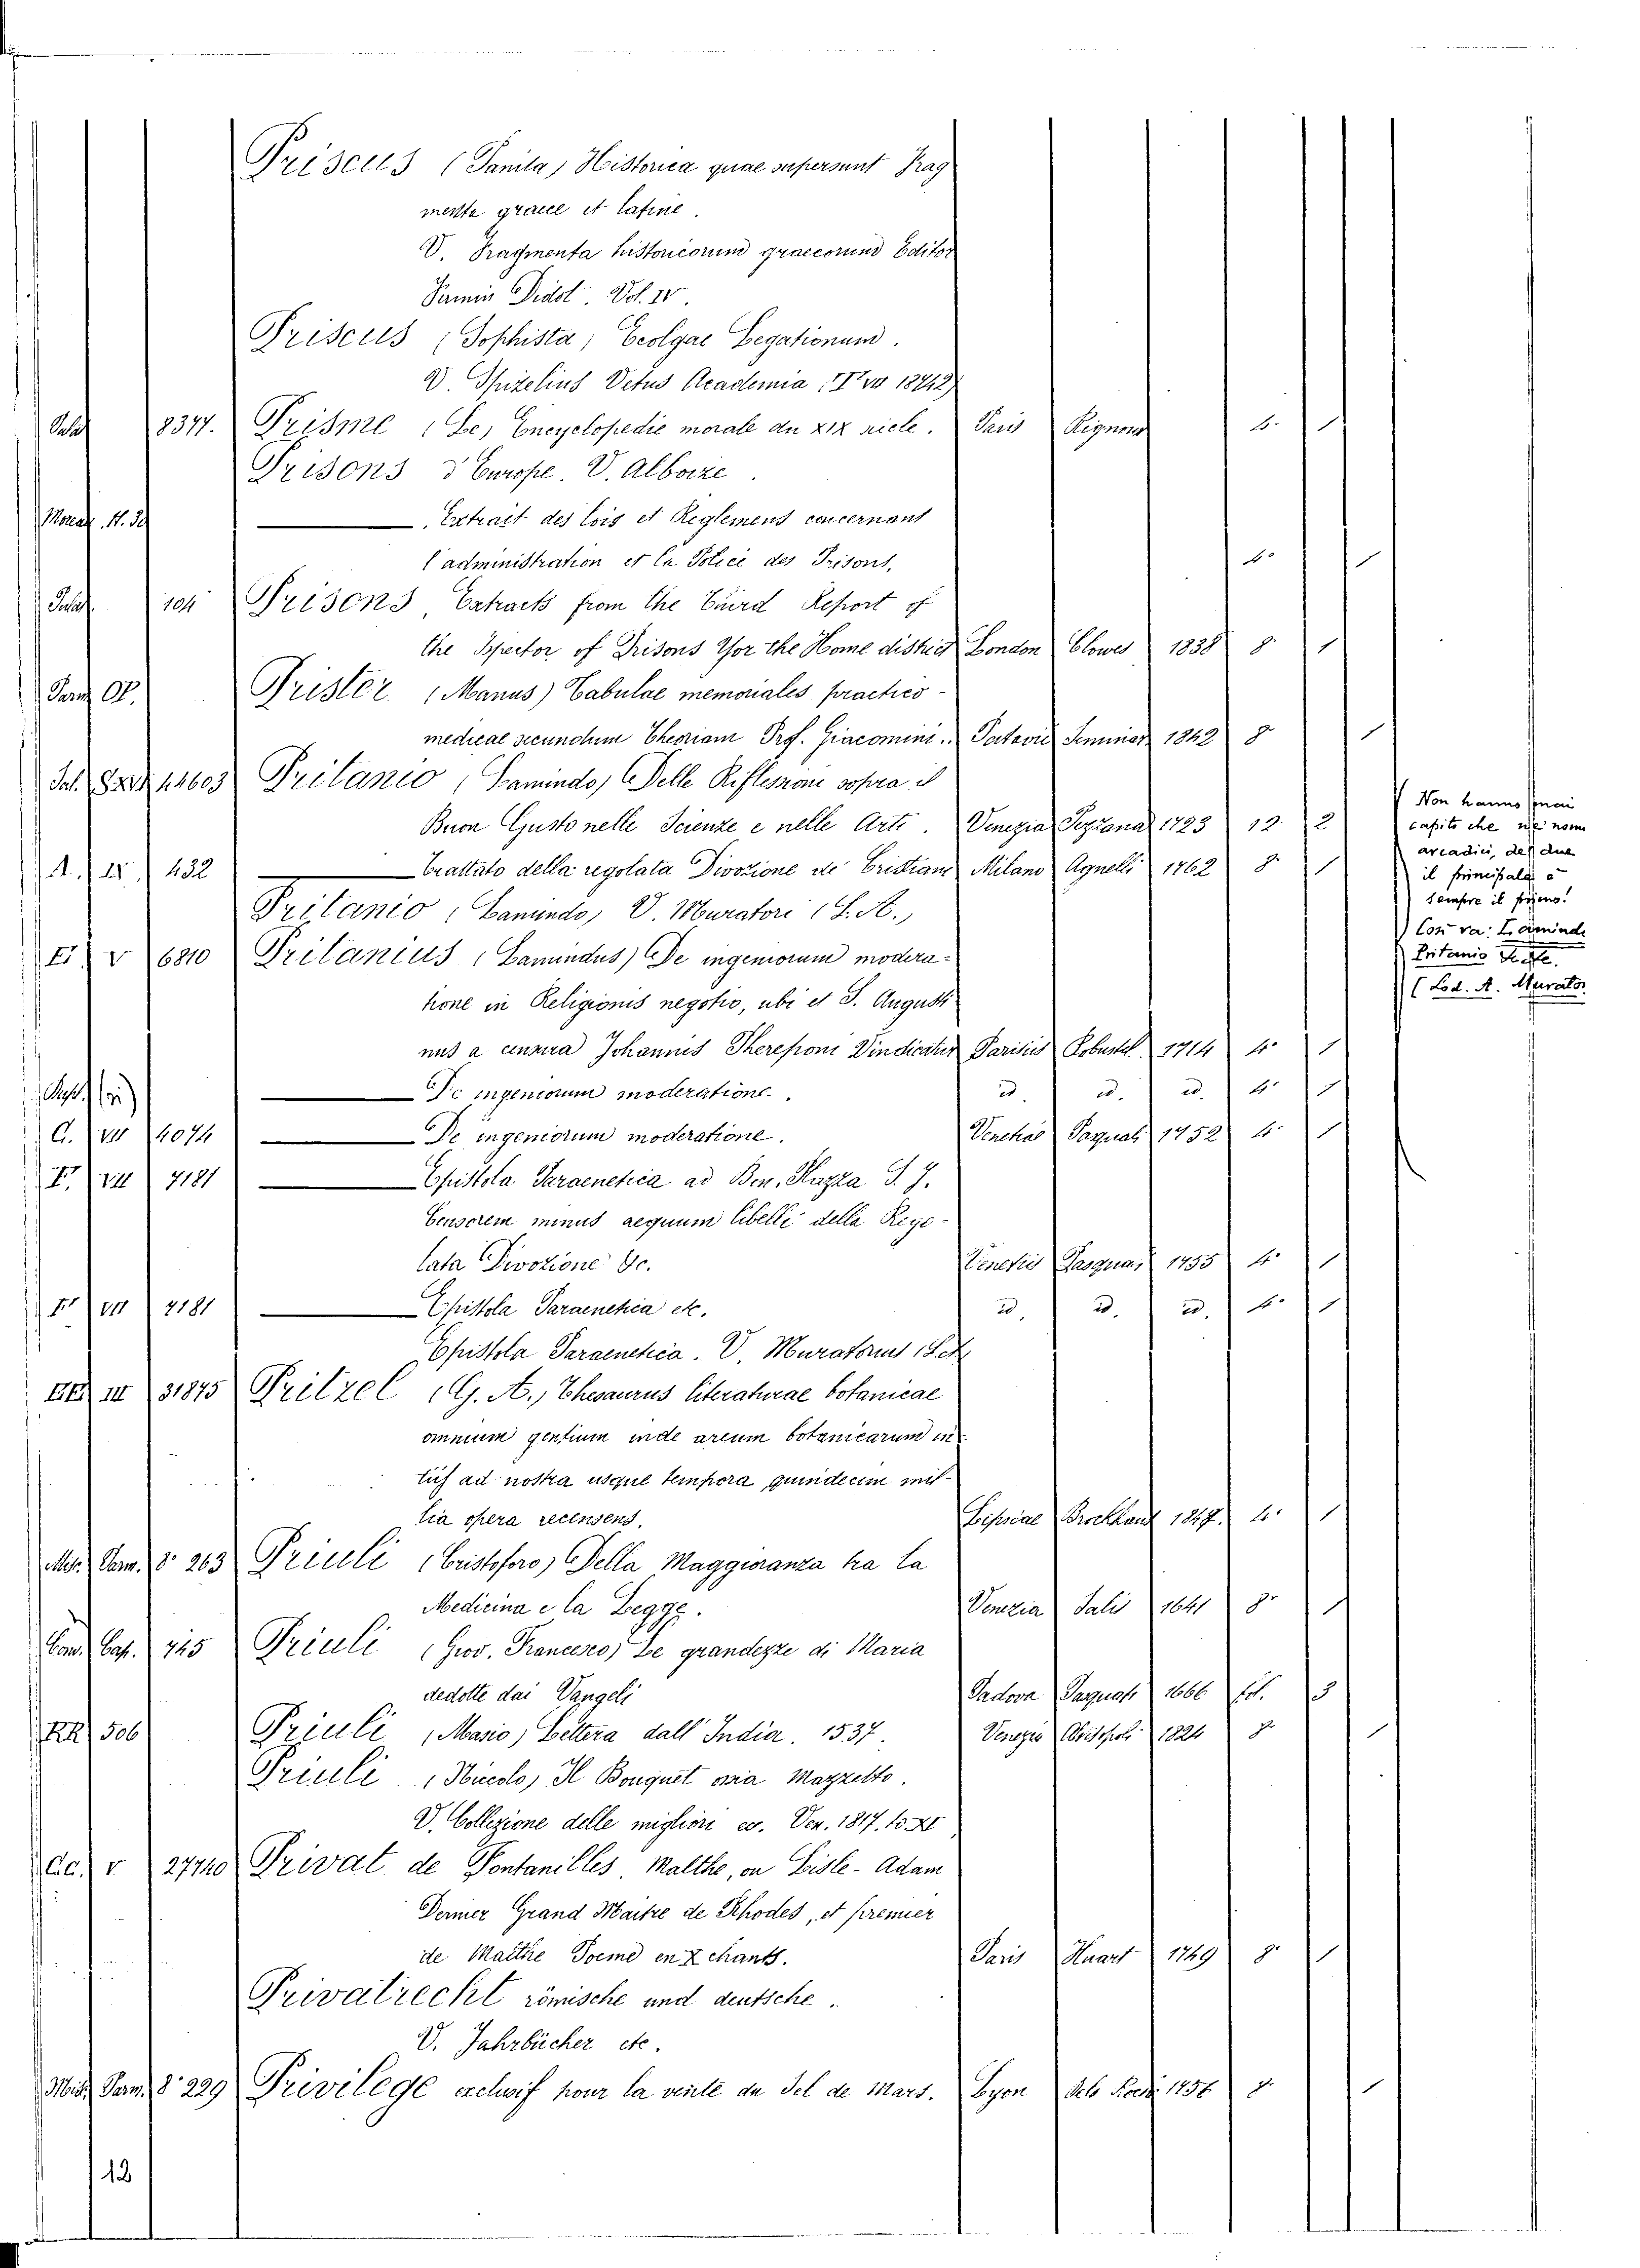 Priscus (Panita) Historica quae supersunt Frag
menta graece et latine.
V. Fragmenta historicorum graecorum Editor
Firmin Didot. Vol. IV.
Priscus (Sophista) Ecolgae Legationum.
V. Spizelius Vetus Academia
8377. Prisme (Le) Encyclopedie morale du XIX siele. Paris 4. 1
Prisons d'Europe. V. Alboize.
Extrait des lois et Reglemens concernant
l'administration et la Police des Prisons, 4° 1
104 Prisons, Extracts from the Third Report of
the Ispector of Prisons for the Home district London Clowes 1838 8. 1
Prister (Manus) Tabulae memoriales practico-
medicae secundum Theoriam Prof. Giacomini.. Patavii Seminar 1842 8 1
14603 Pritanio (Lamindo) Delle Riflessioni sopra il
Buon Gusto nelle Scienze e nelle Arti. Venezia Pezzana 1723 12. 2
A. IX 432 Trattato della regolata Divozione di Cristiani Milano Agnelli 1762 8. 1
Pritanio (Lamindo) V. Muratori (L. A.)
E. V 6810 Pritanius (Lamindus) De ingeniorum modera-
tione in Religionis negotio, ubi et S. Augusti
nus a censura Johannis Phereponi Vindicatur Parisiis Robustel 1714 4° 1
De ingeniorum moderatione. id. id. id. 4. 1
4074 De ingeniorum moderatione. Venetiis Pasquali 1752 4. 1
F. VII 7181 Epistola Paraenetica ad Ben. Plazza S. J.
Censorem minus aequum libelli della Rego-
lata Divozione &c. Venetiis Pasquali 1755 4. 1
F. VII 7181 Epistola Paraenetica etc. id. id. id. 4. 1
Epistola Paraenetica. V. Muratorius
EE III 31875 Pritzel (G. A.) Thesaurus literaturae botanicae
omnium gentium inde arerum botanicarum in
tiis ad nostra usque tempora quindecim mil-
lia opera recensens. Lipsiae Brockhaus 1847. 4. 1
Mss. Parm. 8° 263 Priuli (Cristoforo) Della Maggioranza tra la
Medicina e la Legge. Venezia Salis 1641 8° 1
Cap. 745 Priuli (Giov. Francesco) Le grandezze di Maria
dedotte dai Vangeli Padova Pasquati 1666 fol. 3
RR 506 Priuli (Mario) Lettera dall' India. 1537. Venezia Alvisopoli 1824 8° 1
Priuli (Nicolo) Il Bouquet ossia Mazzetto.
V. Collezione delle migliori ec. Ven. 1817.
CC. V 27740 Privat de Fontanilles, Malthe, ou L'isle-Adam
Dernier Grand Maitre de Rhodes, et premier
de Malthe Poeme en X chants. Paris Huart 1749 8° 1
Privatrecht römische und deutsche.
V. Jahrbücher etc.
Misc. Parm. 8° 229 Privilege exclusif pour la vente du Sel de Mars. Lyon 1756 8° 1
12
Non hanno mai
capito che ne nomi
arcadici, dei due
il principale è
sempre il primo!
Così va: Lamindo
Pritanio
(Lod. A. Murator